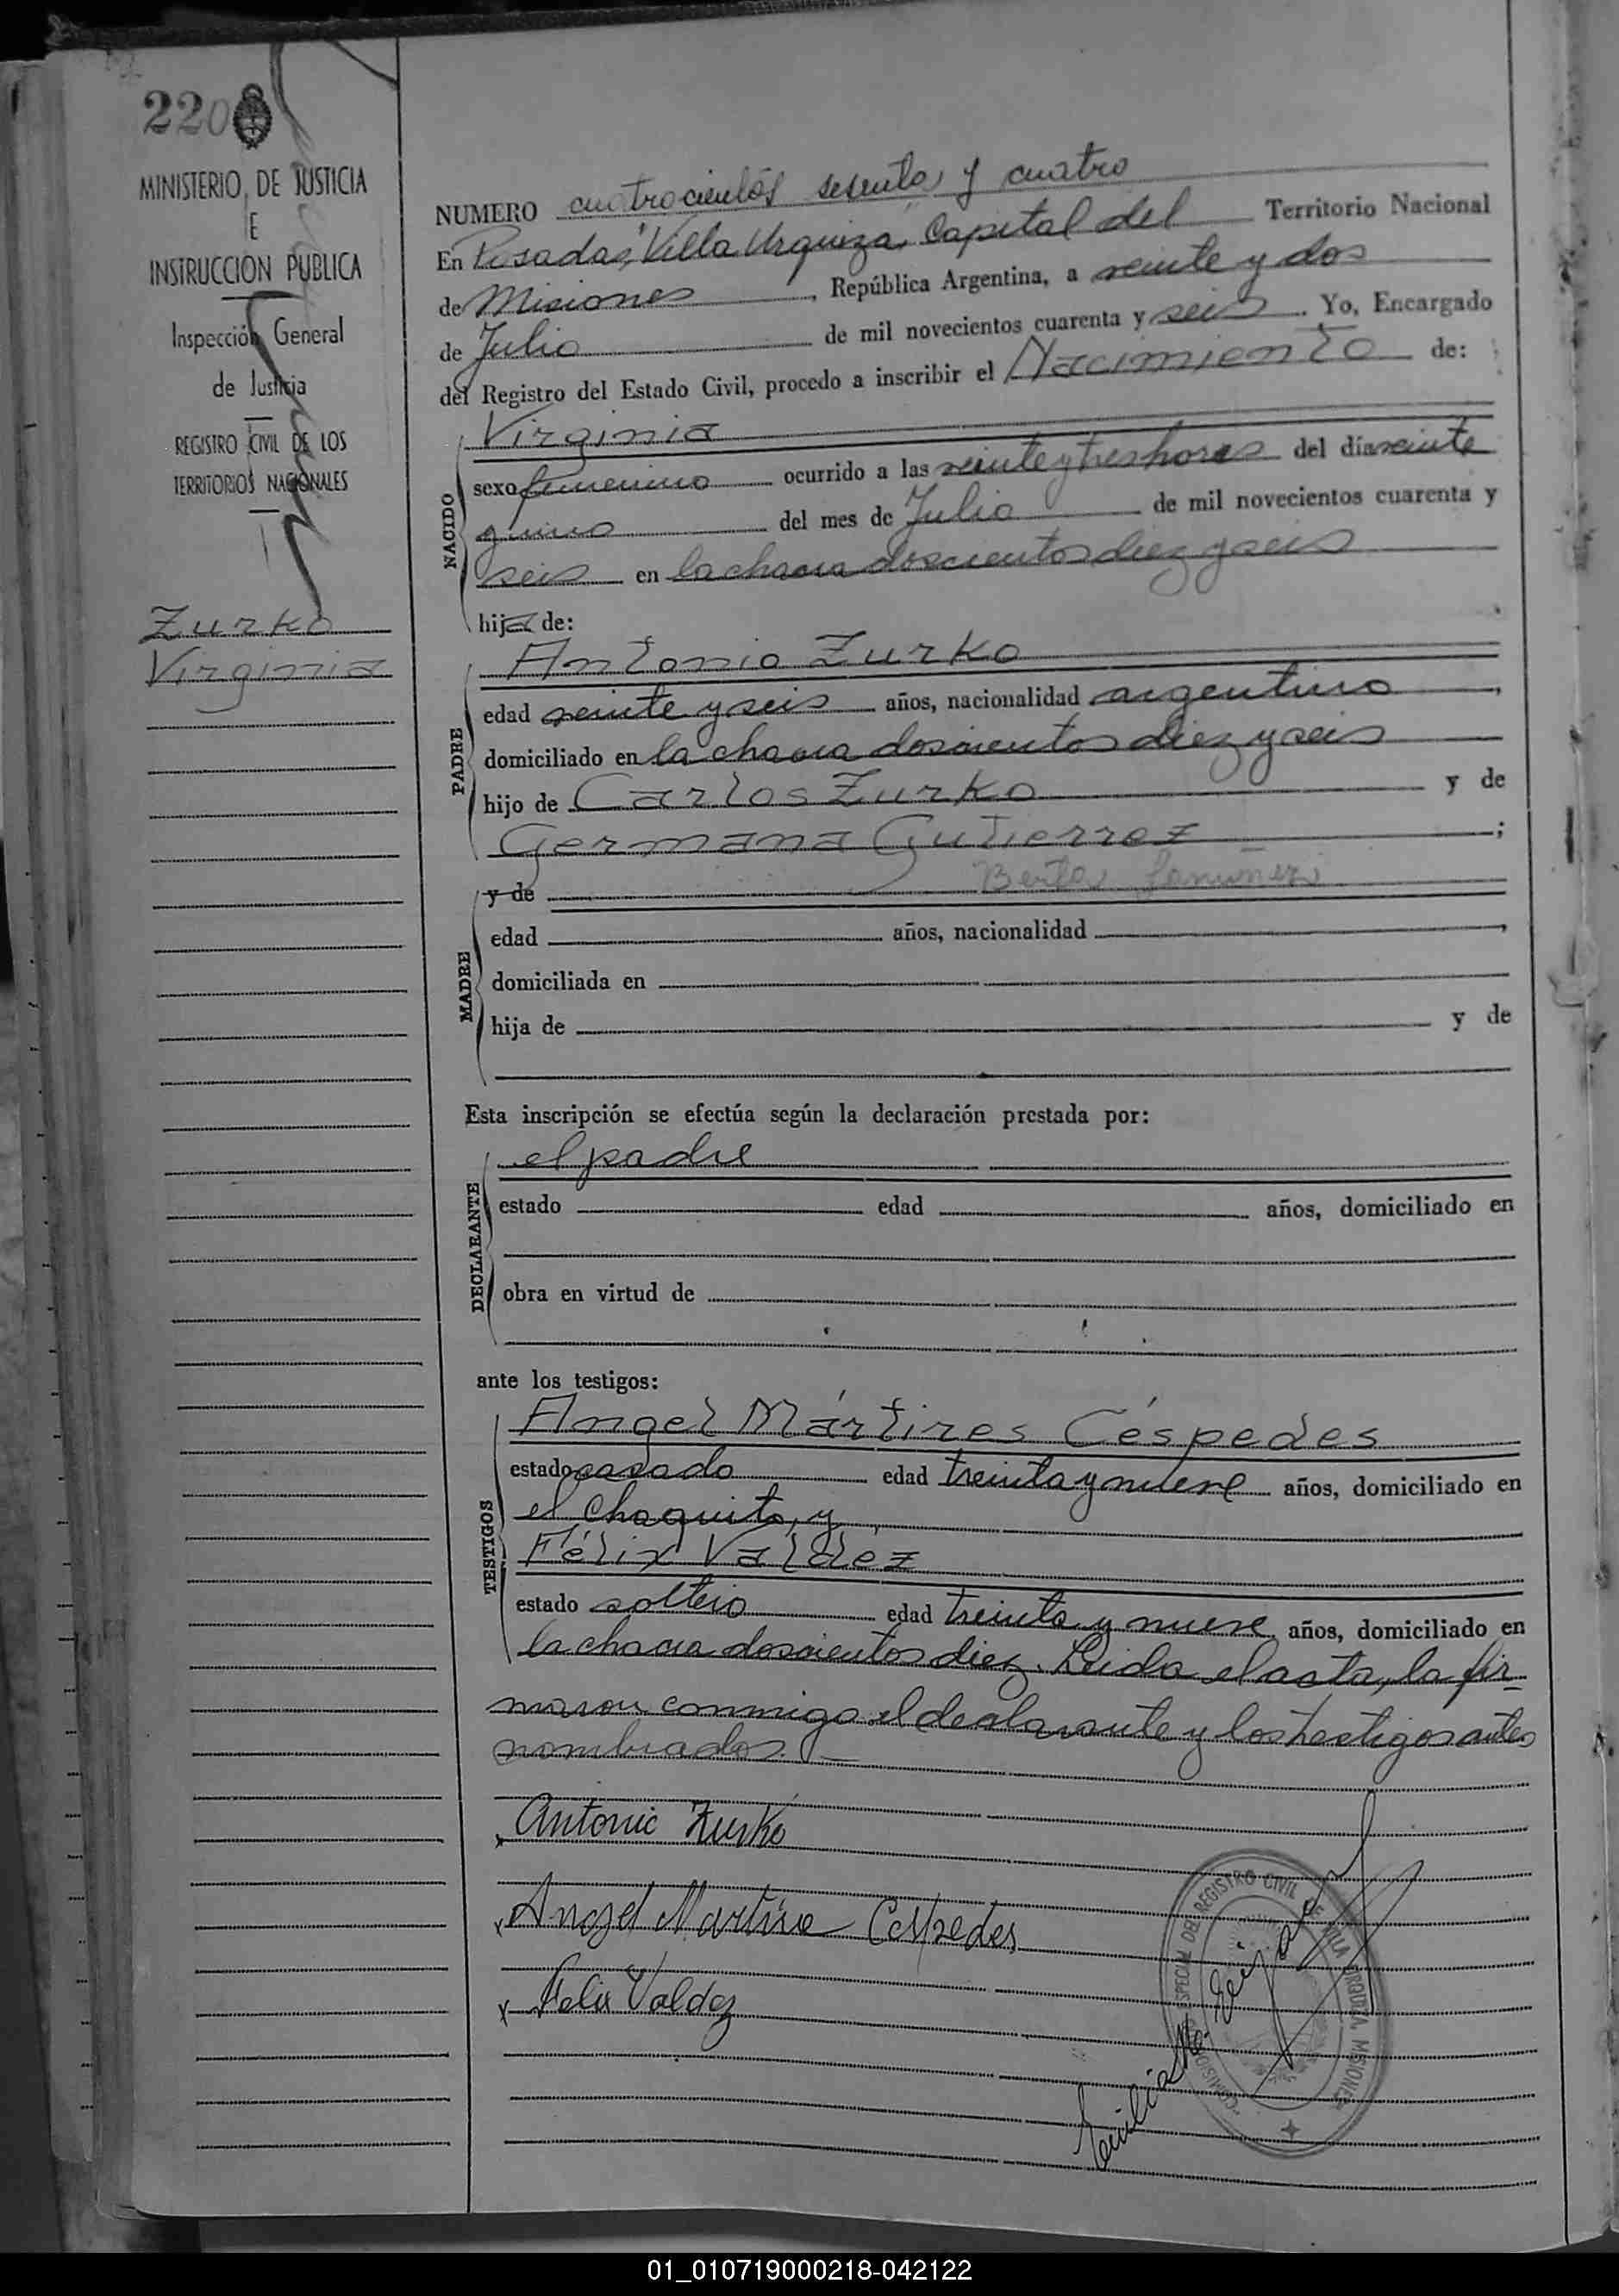 220
MINISTERIO DE JUSTICIA
E
INSTRUCCIÓN PÚBLICA
Inspección General
de Justicia
REGISTRO CIVIL DE LOS
TERRITORIOS NACIONALES
Zurko
Virginia
NUMERO cuatrocientos sesenta y cuatro
En Posadas, "Villa Urquiza", Capital del Territorio Nacional
de Misiones, República Argentina, a veinte y dos
de Julio de mil novecientos cuarenta y seis. Yo, Encargado
del Registro del Estado Civil, procedo a inscribir el Nacimiento de:
NACIDO
Virginia
sexo femenino ocurrido a las veinte y tres horas del día veinte
y uno del mes de Julio de mil novecientos cuarenta y
seis en la chacra doscientos diez y seis
hija de:
PADRE
Antonio Zurko
edad veinte y seis años, nacionalidad argentino,
domiciliado en la chacra doscientos diez y seis
hijo de Carlos Zurko y de
Germana Gutierrez;
MADRE
y de Berta
edad años, nacionalidad,
domiciliada en
hija de y de
Esta inscripción se efectúa según la declaración prestada por:
DECLARANTE
el padre
estado edad años, domiciliado en
obra en virtud de
ante los testigos:
TESTIGOS
Angel Mártires Céspedes
estado casado edad treinta y nueve años, domiciliado en
el Chaquito, y
Félix Valdez
estado soltero edad treinta y nueve años, domiciliado en
la chacra doscientos diez. Leida el acta, la fir-
maron conmigo el declarante y los testigos antes
nombrados.
Antonio Zurko
Angel Martire Cespedes
Felix Valdez
COMISIO ESPECIAL DEL REGISTRO CIVIL DE VILLA URQUIZA, MISIONES
01_010719000218-042122